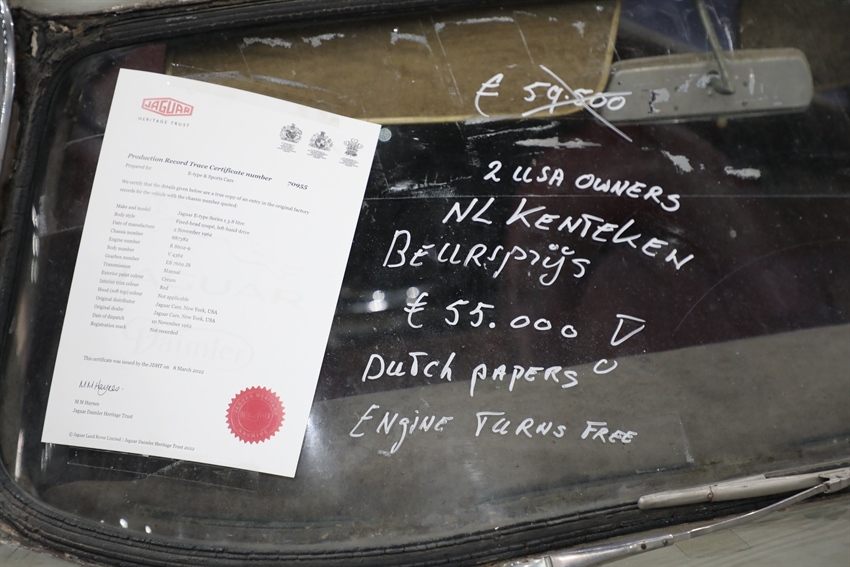 JAGUAR
HERITAGE TRUST
Production Record Trace Certificate number 70955
Prepared for E-type & Sports Cars
We certify that the details given below are a true copy of an entry in the original factory
records for the vehicle with the chassis number quoted:
Make and model Jaguar E-type Series 1 3.8 litre
Body style Fixed head coupé, left-hand drive
Date of manufacture 1 November 1962
Chassis number
Engine number
Body number
Gearbox number
Transmission Manual
Exterior paint colour Cream
Interior trim colour Red
Hood (soft top) colour Not applicable
Original distributor Jaguar Cars, New York, USA
Original dealer Jaguar Cars, New York, USA
Date of dispatch November 1962
Registration mark Not recorded
This certificate was issued by the JDHT on 8 March 2022
MM Haynes
M M Haynes
Jaguar Daimler Heritage Trust
© Jaguar Land Rover Limited / Jaguar Daimler Heritage Trust 2022
€ 59.500
2 USA OWNERS
NL KENTEKEN
BEURSPRIJS
€ 55.000
DUTCH PAPERS
ENGINE TURNS FREE